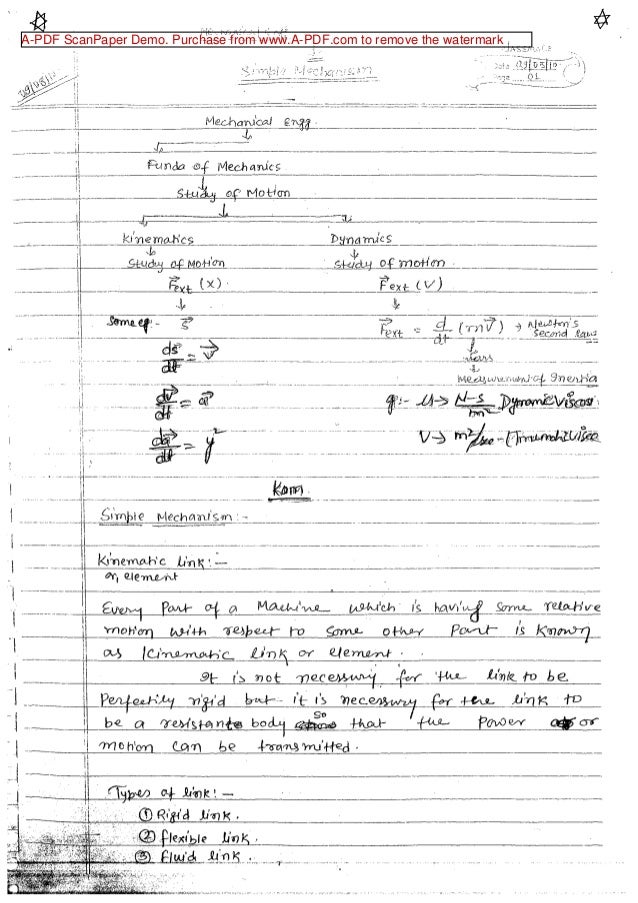 A-PDF ScanPaper Demo. Purchase from www.A-PDF.com to remove the watermark
Simple Mechanism
Date 09/05/10
Page 01
Mechanical Engg.
Funda of Mechanics
Study of Motion
Kinematics Dynamics
Study of Motion Study of motion.
F⃗ext (x). F⃗ext (✓)
Some eg:- s⃗ F⃗ext = d/dt (mv⃗) → Newton's Second Law
ds⃗/dt = v⃗ Mass
Measurement of Inertia
dv⃗/dt = a⃗ μ → N-S/m² Dynamic
da⃗/dt = y² ν → m²/sec
Kom
Simple Mechanism:-
Kinematic link:-
or, element
Every Part of a Machine which is having some relative
motion with respect to some other Part is Known
as Kinematic link or element.
It is not necessary for the link to be
Perfectily rigid but it is necessary for the link to
be a resistant body so that the Power or
motion can be transmitted.
Types of link:-
① Rigid link.
② flexible link.
③ Fluid link.